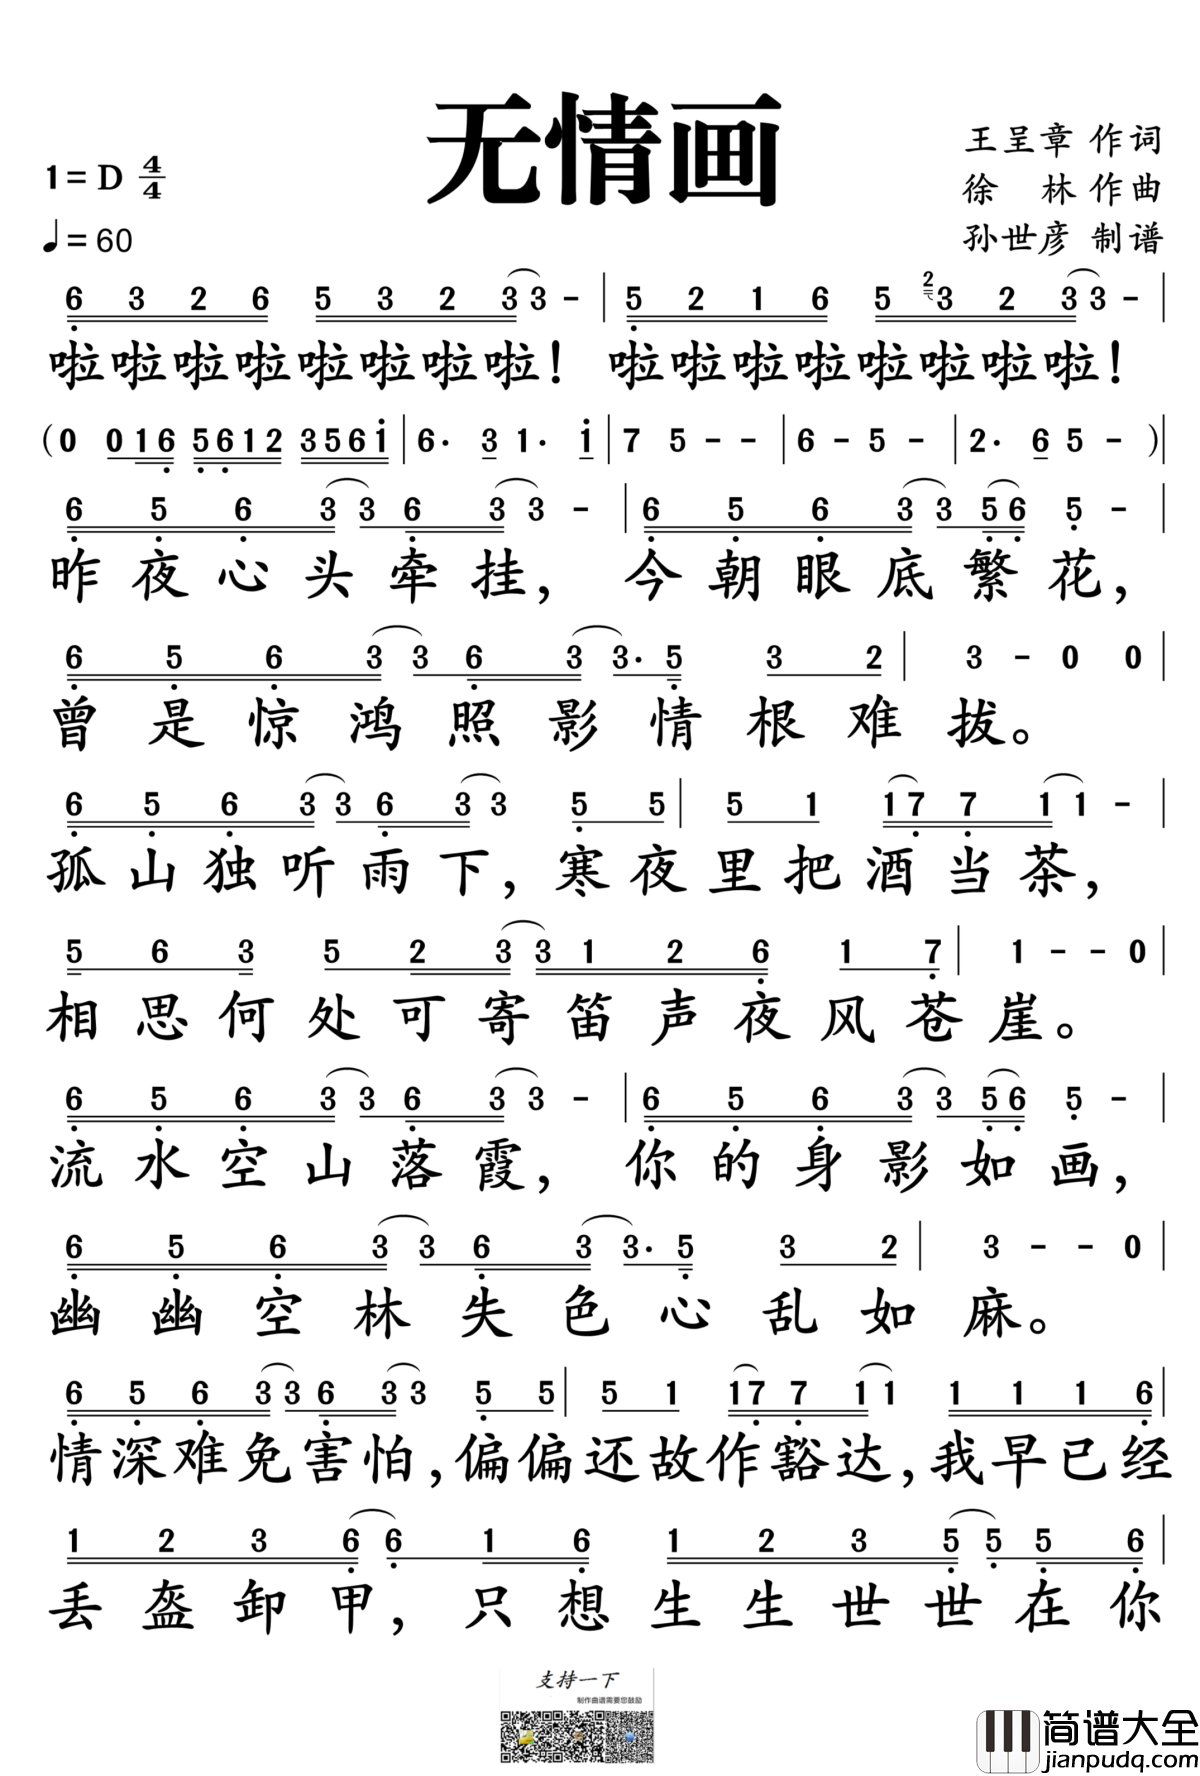 无情画
王呈章 作词
1=D 4/4
徐 林 作曲
♩=60
孙世彦 制谱
6 3 2 6 5 3 2 3 3 - | 5 2 1 6 5 2 3 2 3 3 - |
啦啦啦啦啦啦啦啦! 啦啦啦啦啦啦啦啦!
(0 0 1 6 5 6 1 2 3 5 6 i | 6· 3 1· i | 7 5 - - | 6 - 5 - | 2· 6 5 - )|
6 5 6 3 3 6 3 3 - | 6 5 6 3 3 5 6 5 - |
昨夜心头牵挂,今朝眼底繁花,
6 5 6 3 3 6 3 3· 5 3 2 | 3 - 0 0 |
曾是惊鸿照影情根难拔。
6 5 6 3 3 6 3 3 5 5 | 5 1 1 7 7 1 1 - |
孤山独听雨下,寒夜里把酒当茶,
5 6 3 5 2 3 3 1 2 6 1 7 | 1 - - 0 |
相思何处可寄笛声夜风苍崖。
6 5 6 3 3 6 3 3 - | 6 5 6 3 3 5 6 5 - |
流水空山落霞,你的身影如画,
6 5 6 3 3 6 3 3· 5 3 2 | 3 - - 0 |
幽幽空林失色心乱如麻。
6 5 6 3 3 6 3 3 5 5 | 5 1 1 7 7 1 1 1 1 1 6 |
情深难免害怕,偏偏还故作豁达,我早已经
1 2 3 6 6 1 6 1 2 3 5 5 5 6 |
丢盔卸甲,只想生生世世在你
支持一下
制作曲谱需要您鼓励
简谱大全
jianpudq.com